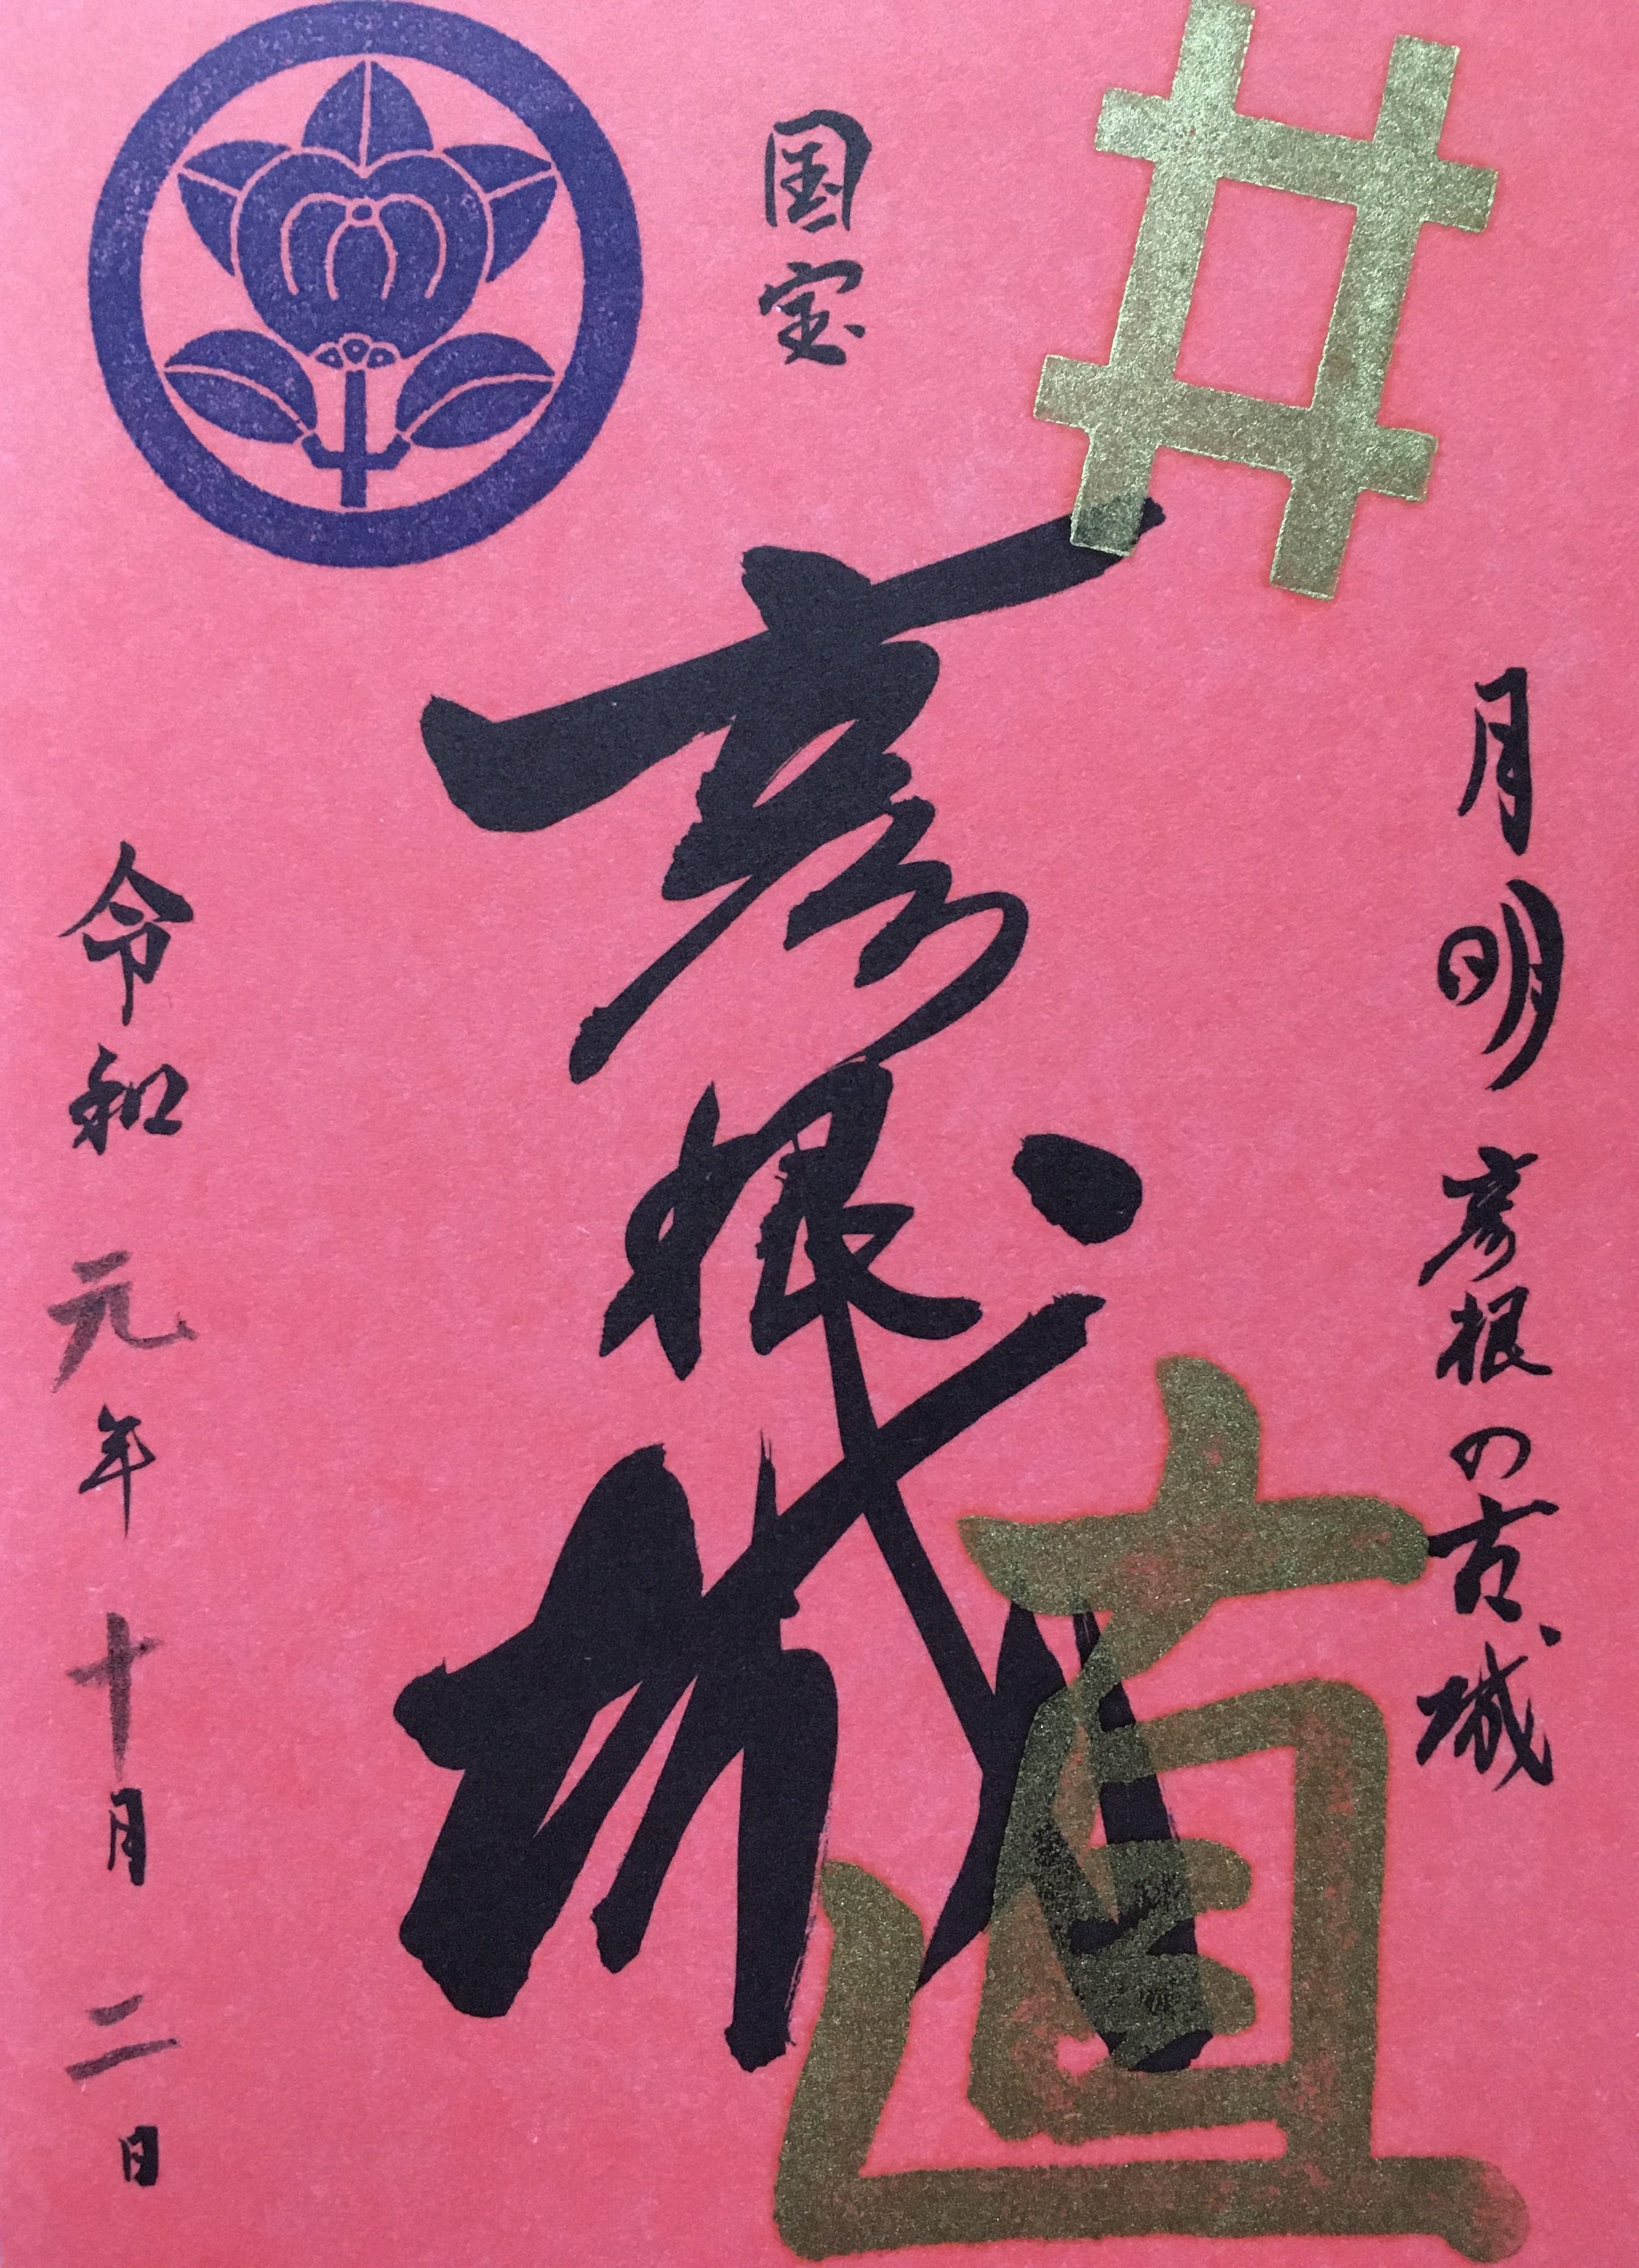 月明 彦根の古城
国宝
彦根城
直
令和元年十月二日